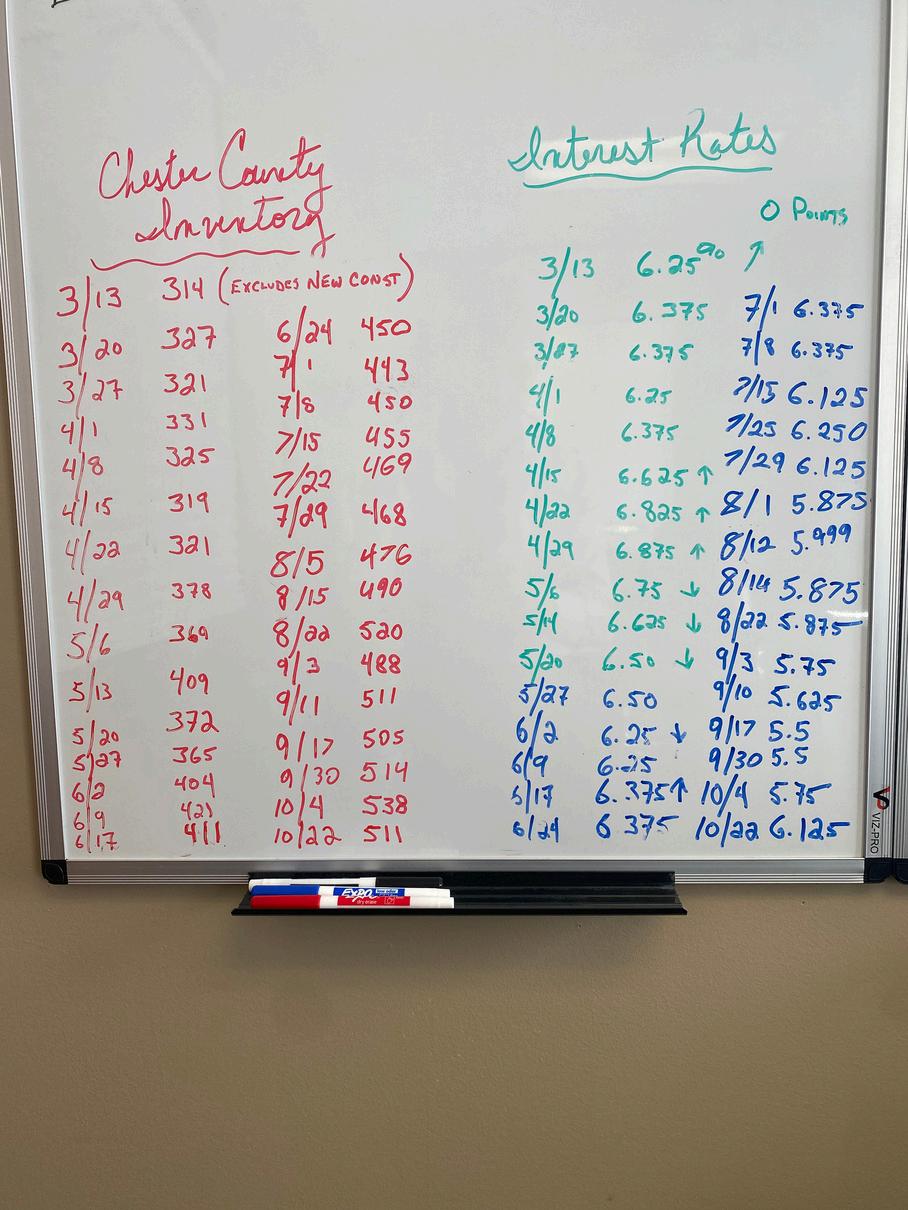 Chester County
Inventory
3/13 314 (EXCLUDES NEW CONST)
3/20 327
3/27 321
4/1 331
4/8 325
4/15 319
4/22 321
4/29 378
5/6 369
5/13 409
5/20 372
5/27 365
6/2 404
6/9 421
6/17 411
6/24 450
7/1 443
7/8 450
7/15 455
7/22 469
7/29 468
8/5 476
8/15 490
8/22 520
9/3 488
9/11 511
9/17 505
9/30 514
10/4 538
10/22 511
Interest Rates
0 POINTS
3/13 6.25% ↑
3/20 6.375
3/27 6.375
4/1 6.25
4/8 6.375
4/15 6.625 ↑
4/22 6.825 ↑
4/29 6.875 ↑
5/6 6.75 ↓
5/14 6.625 ↓
5/20 6.50 ↓
5/27 6.50
6/2 6.25 ↓
6/9 6.25
6/17 6.375 ↑
6/24 6.375
7/1 6.375
7/8 6.375
7/15 6.125
7/25 6.250
7/29 6.125
8/1 5.875
8/12 5.999
8/14 5.875
8/22 5.875
9/3 5.75
9/10 5.625
9/17 5.5
9/30 5.5
10/4 5.75
10/22 6.125
VIZ-PRO
EXPO
dry erase